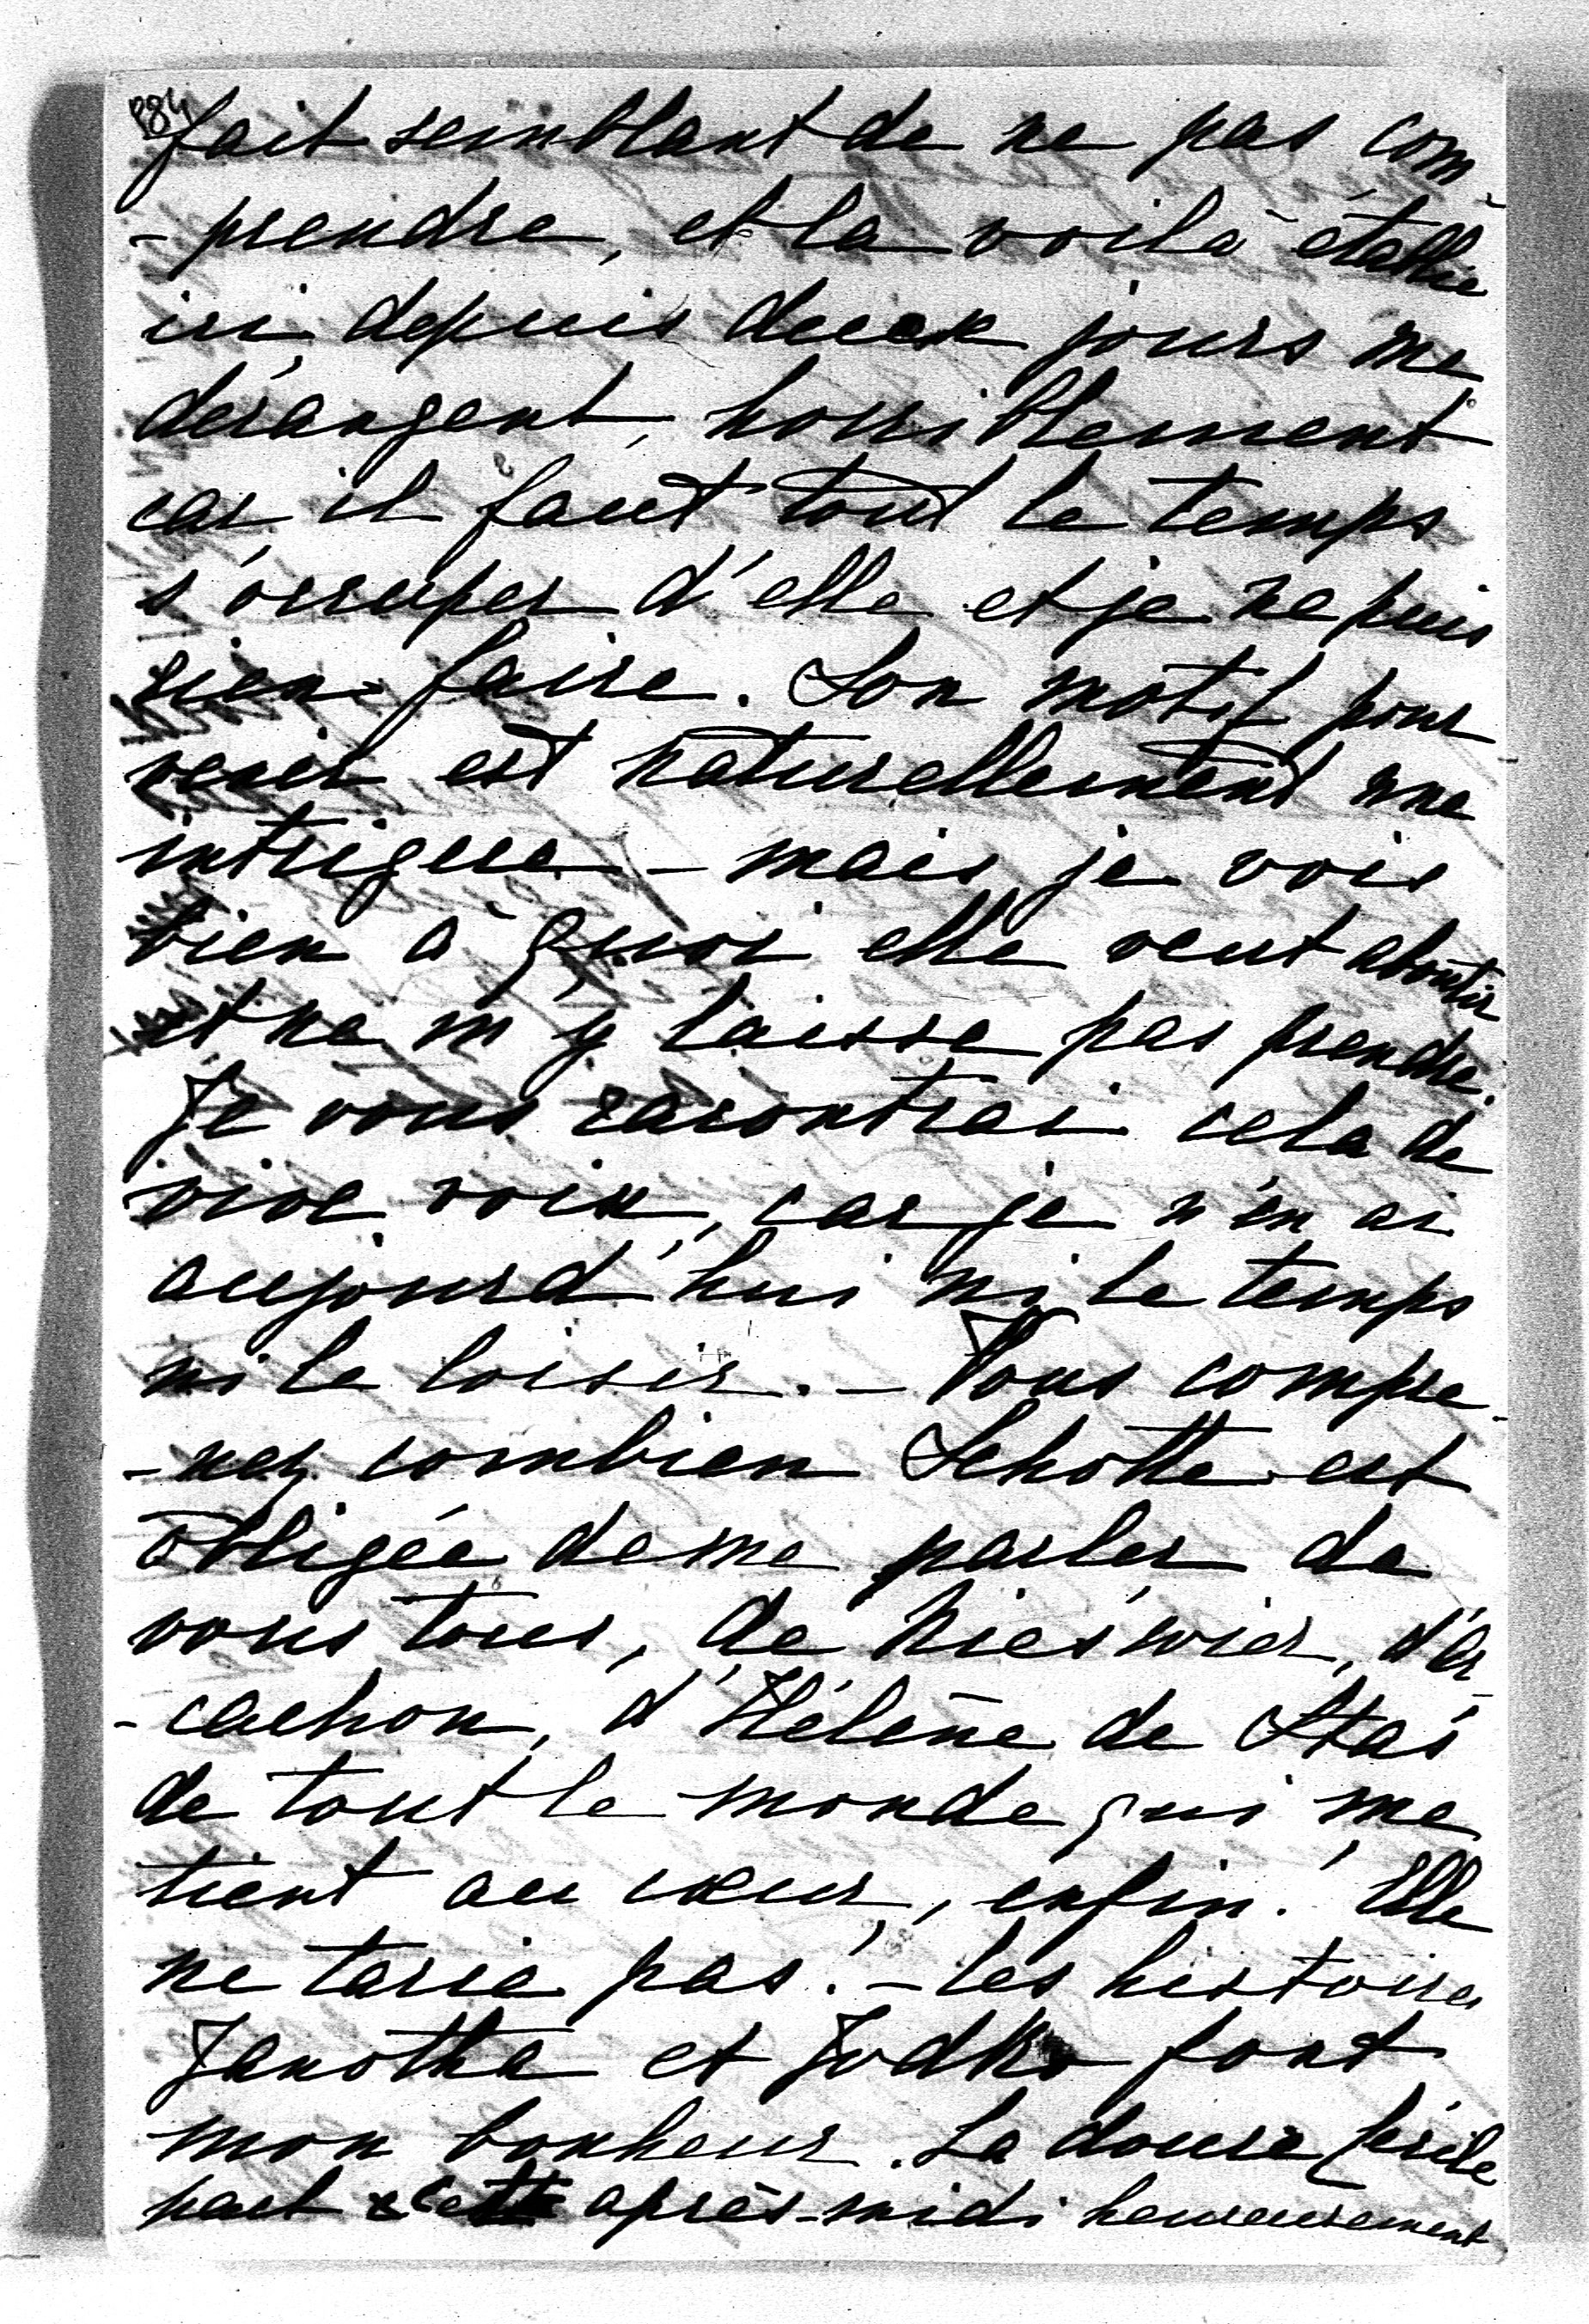 984
fait semblant de ne pas com-
-prendre, et la voilà établie
ici, depuis deux jours me
dérangent, horriblement
car il faut tout le temps
s'occuper d'elle et je ne puis
rien faire. Son motif pour
venir est naturellement une
intrigue – mais je vois
bien à quoi elle veut aboutir
et ne m'y laisse pas prendre.
Je vous racontrai cela de
vive voix, car je n'en ai
aujourd'hui ni le temps
ni le loisir. – Vous compre-
-nez combien Schotte est
obligée de me parler de
vous tous, de Nieswier, d'Ar-
-cachon, d'Hélène de Stas
de tout le monde qui me
tient au cœur, enfin! Elle
ne tarie pas! – Les histoires
Janotha et Jodko font
mon bonheur. La douce Cécile
part cette après-midi heureusement